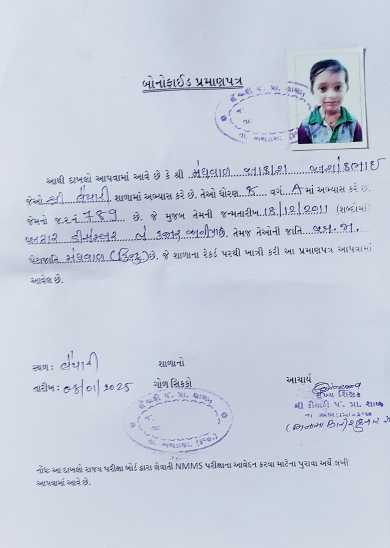 બોનોફાઈડ પ્રમાણપત્ર
આથી દાખલો આપવામાં આવે છે કે શ્રી મેઘવાળ આકાશ
જેઓ શ્રી દૈયારી શાળામાં અભ્યાસ કરે છે. તેઓ ધોરણ 8 વર્ગ A માં અભ્યાસ કરે છે.
જેમનો જ.ર.નં 789 છે. જે મુજબ તેમની જન્મતારીખ 18/12/2011 (શબ્દોમાં)
અઢાર ડીસેમ્બર બે હજાર અગીયાર છે. તેમજ તેઓની જાતિ
પેટાજાતિ મેઘવાળ (હિન્દુ) છે. જે શાળાના રેકર્ડ પરથી ખાત્રી કરી આ પ્રમાણપત્ર આપવામાં
આવેલ છે.
સ્થળ: દૈયારી
શાળાનો
તારીખ: 08/01/2025
ગોળ સિક્કો
આચાર્ય
મુખ્ય શિક્ષક
નોંધ: આ દાખલો રાજ્ય પરીક્ષા બોર્ડ દ્વારા લેવાતી NMMS પરીક્ષાના આવેદન કરવા માટેના પુરાવા અર્થે લખી
આપવામાં આવે છે.